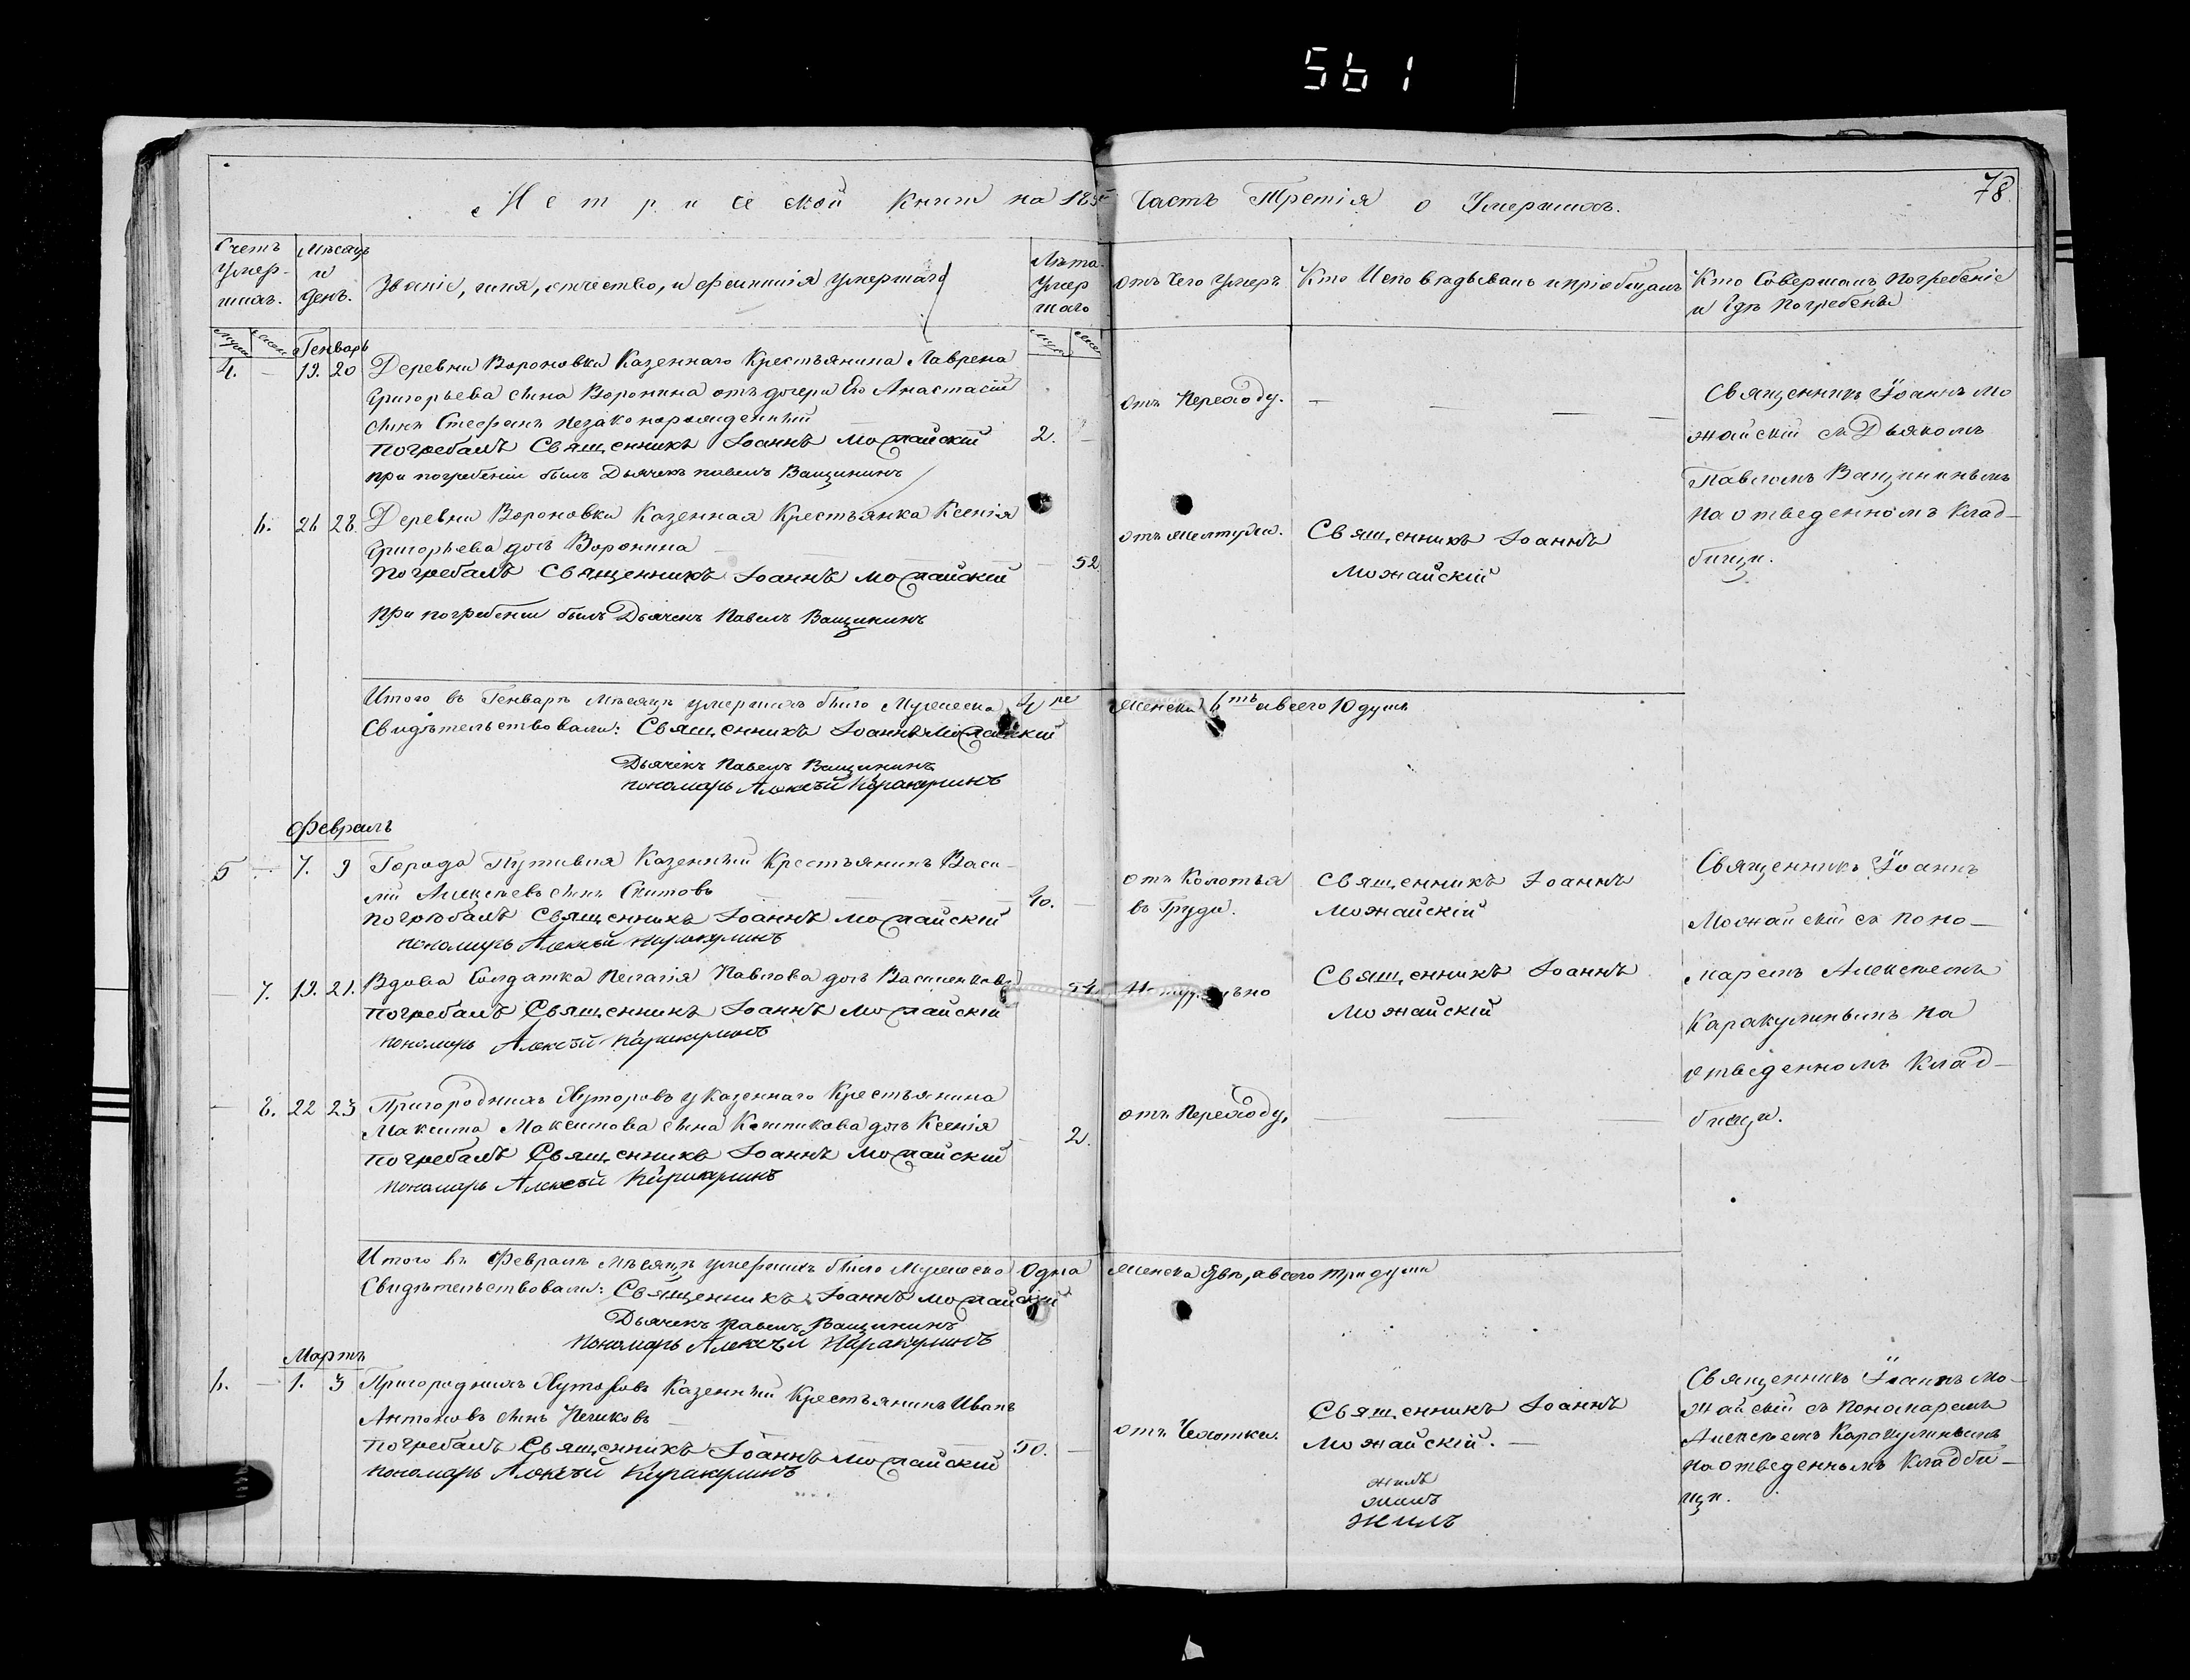 561
78.
Метрической книги на 185
Часть Третія о Умершихъ.
Счетъ умер-шихъ.
Мѣсяцъ и день.
Званіе, имя, отчество, и фамилія умершаго
Лѣта умер шаго
отъ Чего умеръ
Кто Исповѣдывалъ и пріобщалъ
Кто Совершалъ Погребеніе
и Гдѣ Погребены
Генварь
4. — 19. 20 Деревни Вороновки Казеннаго Крестьянина Лаврена
Григорьева сына Воронина отъ дочери Его Анастасіи
сынъ Стефанъ незаконорожденный
Погребалъ Священникъ Іоаннъ Можайскій
при погребеніи былъ Дьячекъ павелъ Ващининъ
2. —
отъ Переходу.
Священникъ Іоаннъ Мо
жайскій съ Дьякомъ
Павломъ Ващининымъ
на отведенномъ Клад-
бищи.
6. 26 28. Деревни Вороновки Казенная Крестьянка Ксенія
Григорьева дочь Воронина
Погребалъ Священникъ Іоаннъ Можайскій
При погребеніи былъ Дьячекъ Павелъ Ващининъ
— 52
отъ желтухи.
Священникъ Іоаннъ
Можайскій
Итого въ Генварѣ Мѣсяцѣ умершихъ было Мужеска 4ре
женска 6ть а всего 10 душъ
Свидѣтельствовали: Священникъ Іоаннъ Можайскій
Дьячекъ Павелъ Ващининъ
пономарь Алексѣй Каракулинъ
Февраль
5 — 7. 9 Города Путивля Казенный Крестьянинъ Васи-
лій Алексѣевъ сынъ Скитовъ
погребалъ Священникъ Іоаннъ Можайскій
пономарь Алексѣй Каракулинъ
40. —
отъ Колотья
въ Груди.
Священникъ Іоаннъ
Можайскій
Священникъ Іоаннъ
Можайскій съ поно-
маремъ Алексѣемъ
Каракулинымъ на
отведенномъ Клад-
бищи.
7. 19. 21. Вдова Солдатка Пелагія Павлова дочь
Погребалъ Священникъ Іоаннъ Можайскій
пономарь Алексѣй Каракулинъ
Священникъ Іоаннъ
Можайскій
— 8. 22 23 Пригороднихъ Хуторовъ у Казеннаго Крестьянина
Максима Максимова сына дочь Ксенія
погребалъ Священникъ Іоаннъ Можайскій
пономарь Алексѣй Каракулинъ
— 2.
отъ Переходу.
Итого въ Февралѣ Мѣсяцѣ умершихъ было Мужеска Одна
женска Двѣ, а всего три души
Свидѣтельствовали: Священникъ Іоаннъ Можайскій
Дьячекъ Павелъ Ващининъ
Пономарь Алексѣй Каракулинъ
Мартъ
6. — 1. 3 Пригороднихъ Хуторовъ Казенный Крестьянинъ Иванъ
Антоновъ сынъ
Погребалъ Священникъ Іоаннъ Можайскій
пономарь Алексѣй Каракулинъ
50. —
отъ Чехотки.
Священникъ Іоаннъ
Можайскій. —
Священникъ Іоаннъ Мо-
жайскій съ Пономаремъ
Алексѣемъ Каракулинымъ
на отведенномъ Кладби-
щи.
жилъ
жилъ
жилъ